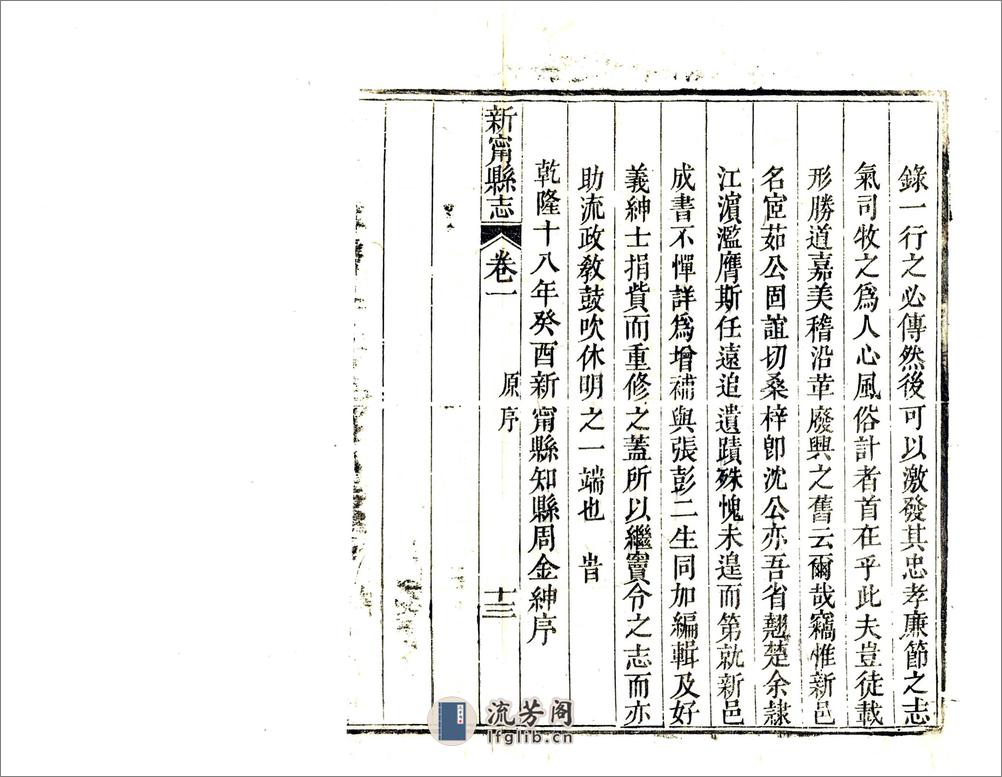 錄一行之必傳然後可以激發其忠孝廉節之志
氣司牧之爲人心風俗計者首在乎此夫豈徒載
形勝道嘉美稽沿革廢興之舊云爾哉竊惟新邑
名宦茹公固誼切桑梓卽沈公亦吾省翹楚余隸
江濵濫膺斯任遠追遺蹟殊愧未遑而第就新邑
成書不憚詳爲增補與張彭二生同加編輯及好
義紳士捐貲而重修之蓋所以繼竇令之志而亦
助流政敎鼓吹休明之一端也 旹
乾隆十八年癸酉新甯縣知縣周金紳序
新甯縣志 卷一 原序 十三
流芳阁
lfglib.cn